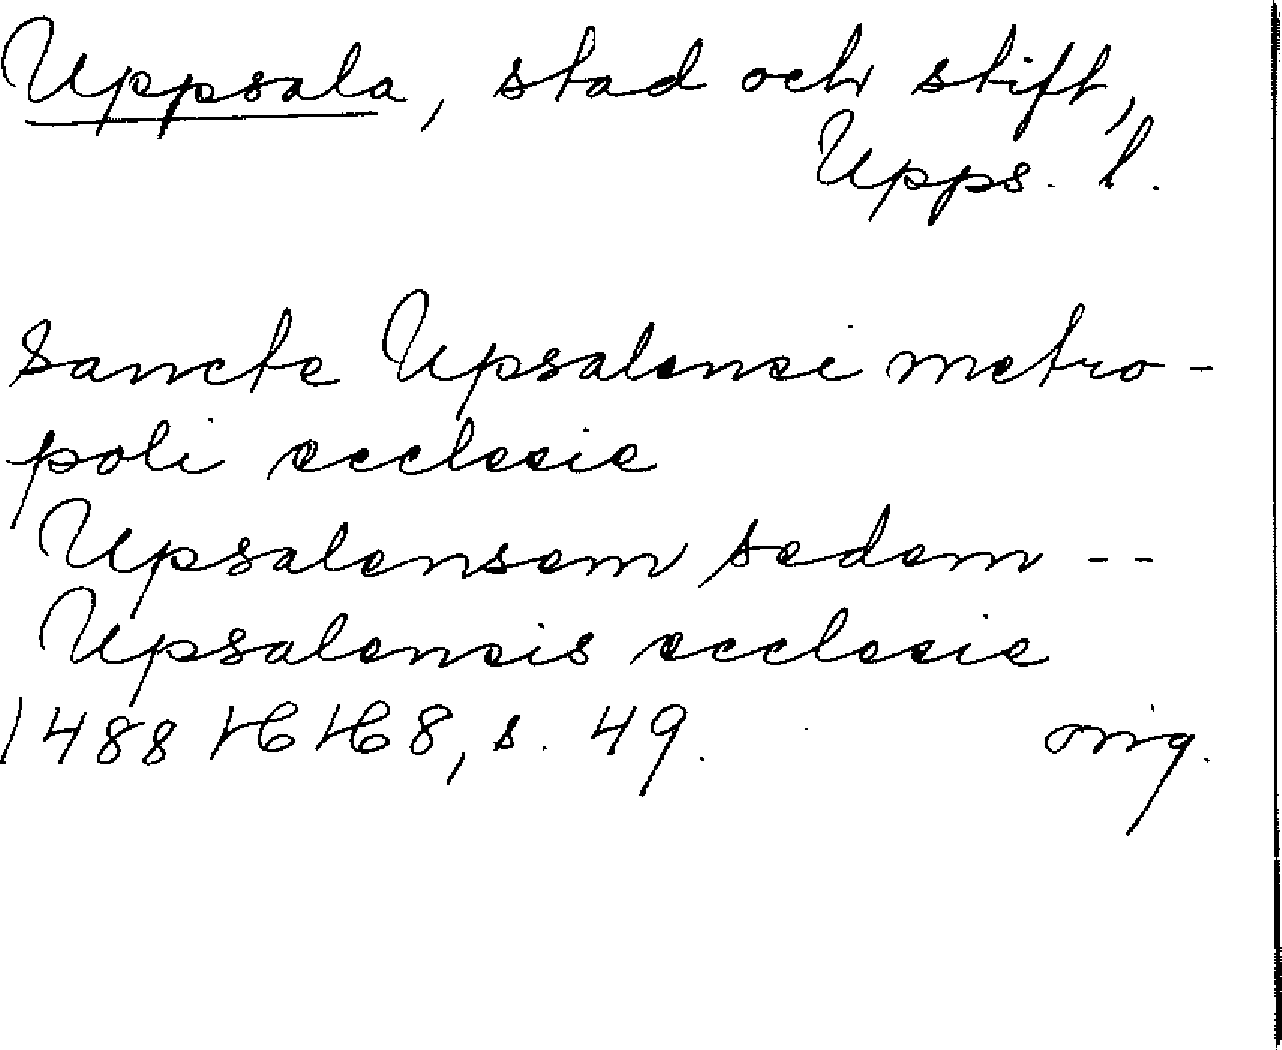 Uppsala, stad och stift,
Upps. l.
Sancte Upsalensi metro-
poli ecclesie
Upsalensem sedem --
Upsalensis ecclesie
1488 HH 8, s. 49. orig.